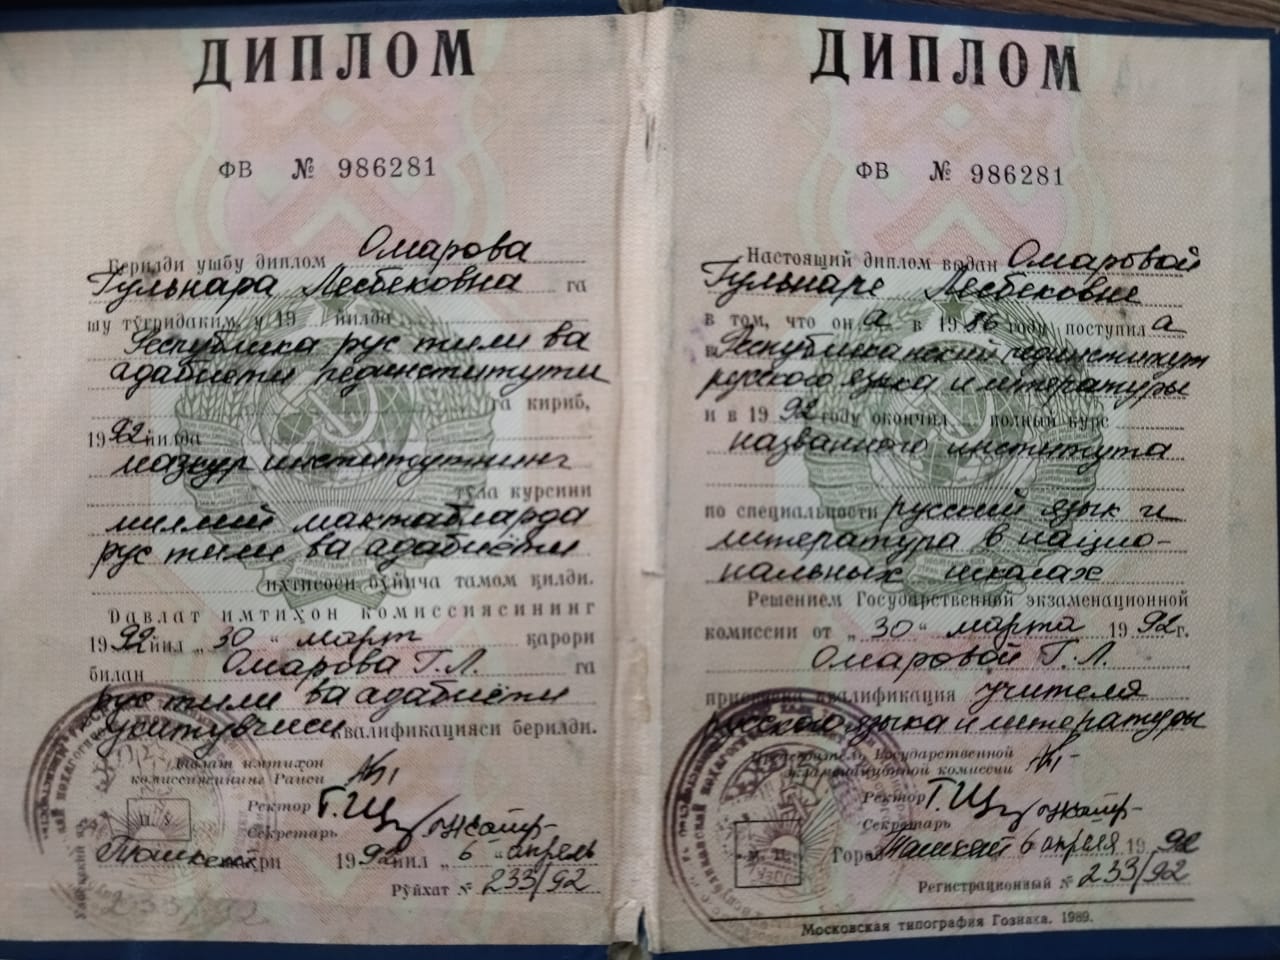 ДИПЛОМ
ФВ № 986281
Берилди ушбу диплом Омарова
Гульнара Лесбековна га
шу тўғридаким, у 19 йилда
Республика рус тили ва
адабиёти пединститути
га кириб,
1992 йилда
мазкур институтнинг
тўла курсини
миллий мактабларда
рус тили ва адабиёти
ихтисоси бўйича тамом қилди.
Давлат имтиҳон комиссиясининг
1992 йил „30“ март қарори
билан Омарова Г.Л. га
рус тили ва адабиёти
ўқитувчиси квалификацияси берилди.
Давлат имтиҳон
комиссиясининг Раиси
Ректор
Секретарь
Тошкент 1992 йил „6“ апрель
Рўйхат № 233/92
ДИПЛОМ
ФВ № 986281
Настоящий диплом выдан Омаровой
Гульнаре Лесбековне
в том, что он а в 1986 году поступил а
в Республиканский пединститут
русского языка и литературы
и в 1992 году окончил полный курс
названного института
по специальности русский язык и
литература в нацио-
нальных школах
Решением Государственной экзаменационной
комиссии от „30“ марта 1992 г.
Омаровой Г.Л.
присвоена квалификация учителя
русского языка и литературы
Председатель Государственной
экзаменационной комиссии
Ректор
Секретарь
Город Ташкент 6 апреля 1992
Регистрационный № 233/92
Московская типография Гознака. 1989.